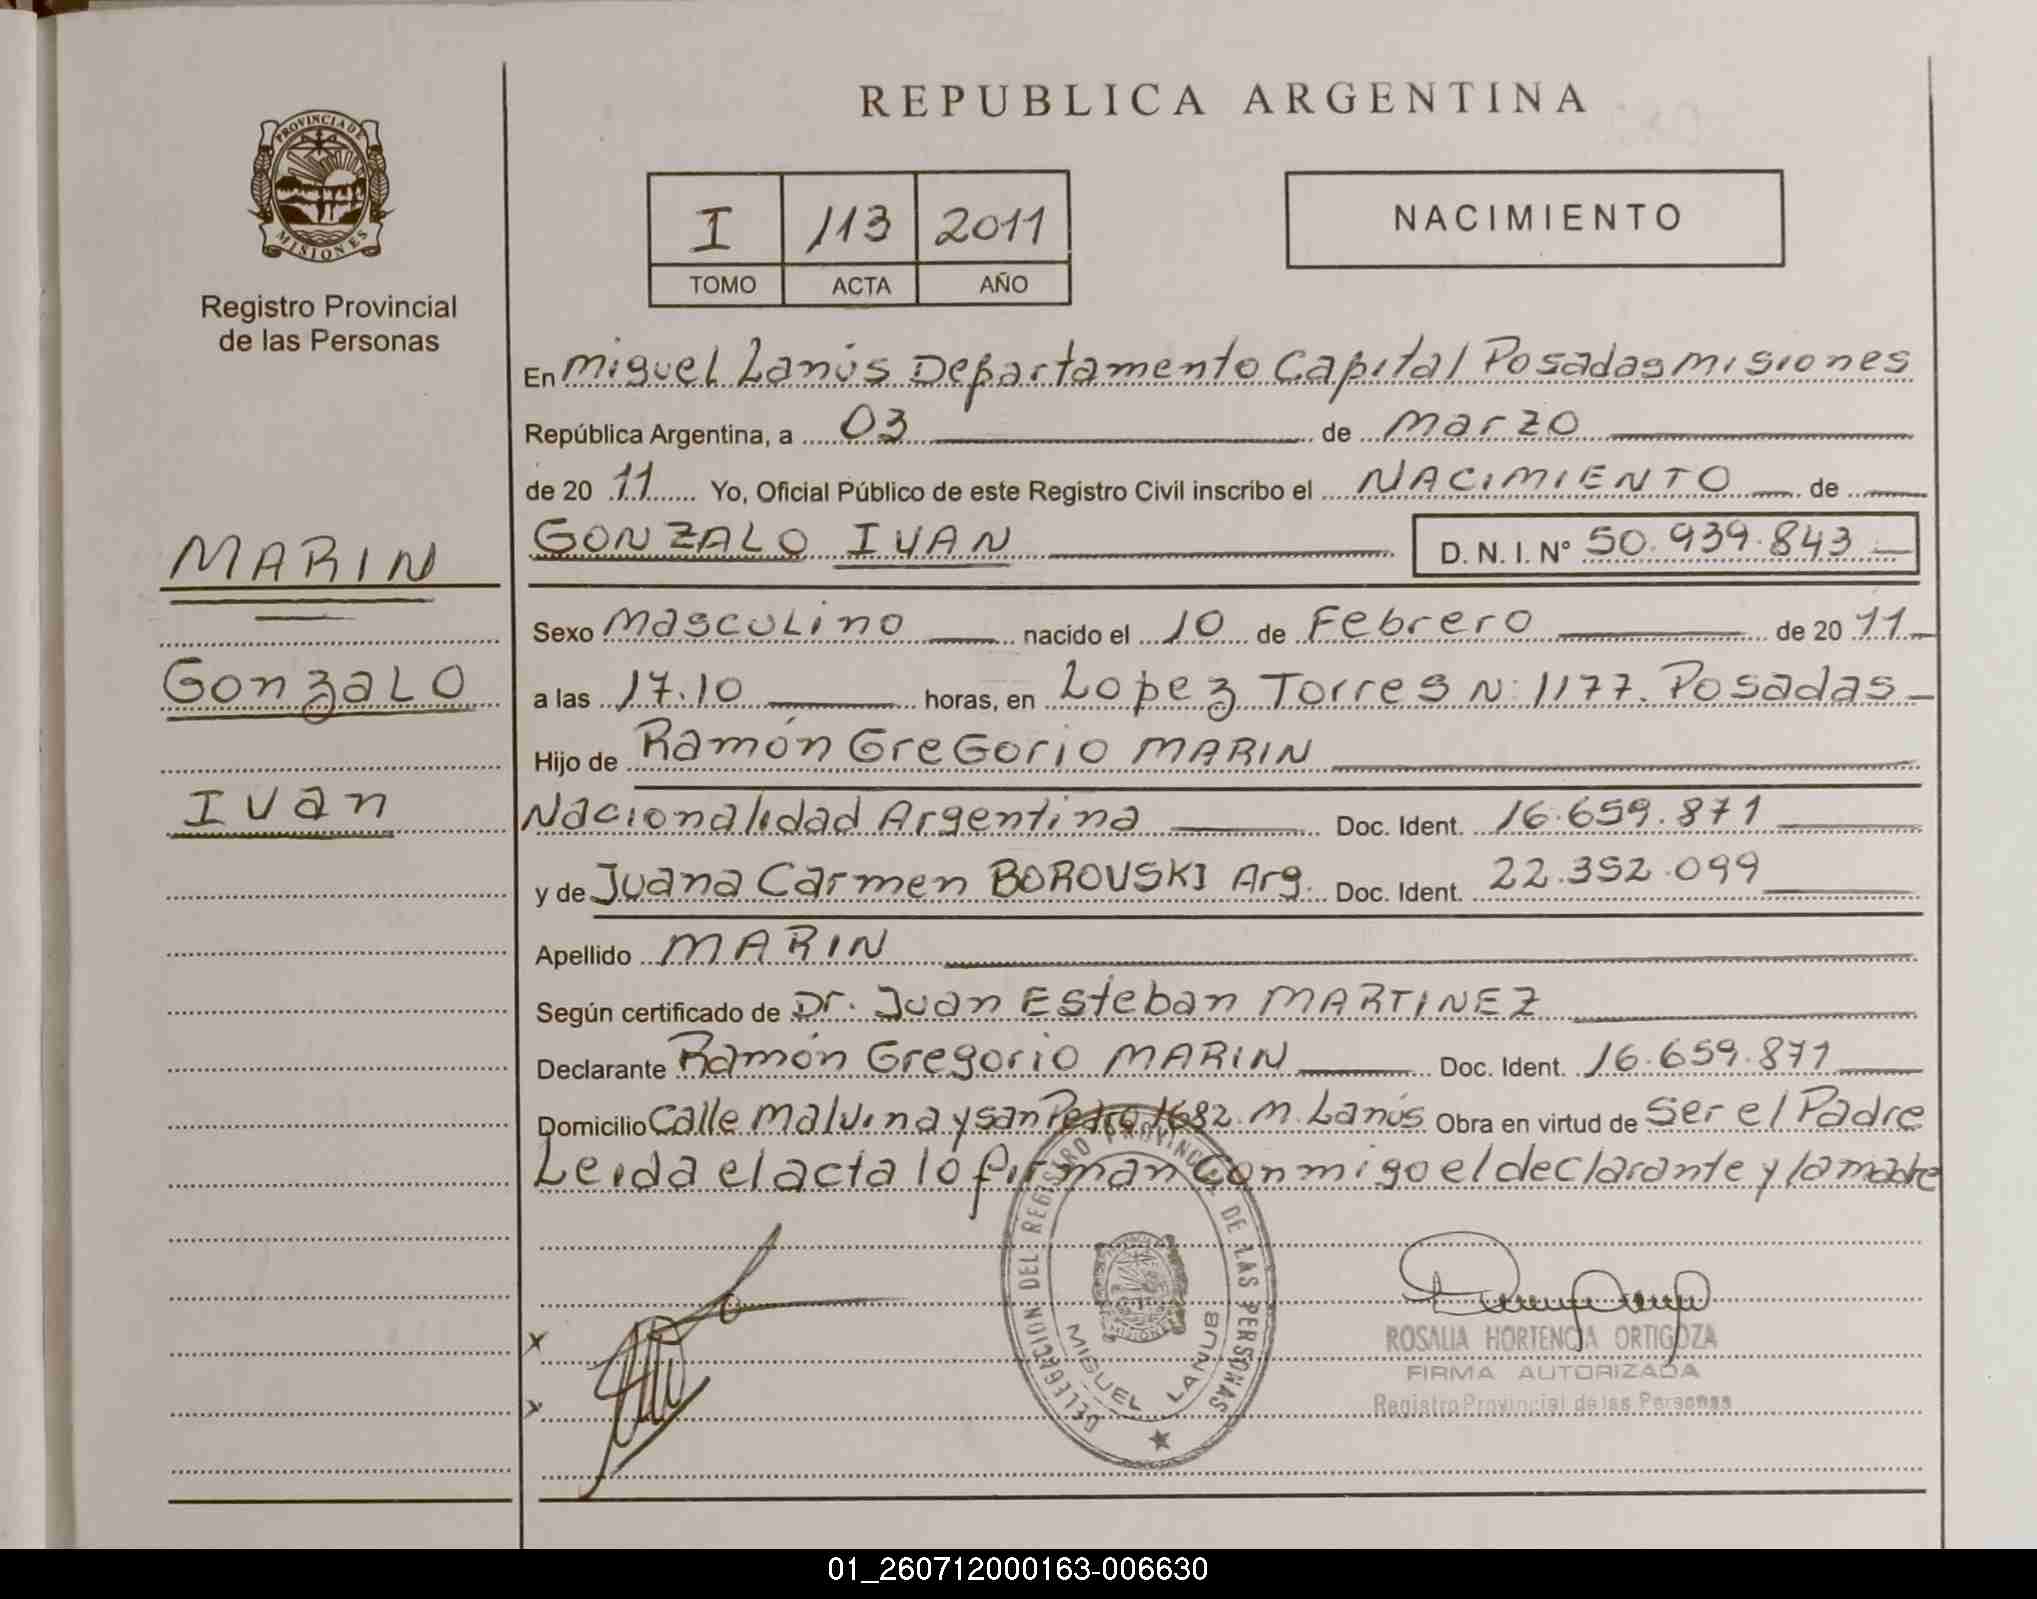 REPUBLICA ARGENTINA
PROVINCIA DE MISIONES
Registro Provincial
de las Personas
I 113 2011
TOMO ACTA AÑO
NACIMIENTO
En Miguel Lanús Departamento Capital Posadas Misiones
República Argentina, a 03 de Marzo
de 20 11 Yo, Oficial Público de este Registro Civil inscribo el NACIMIENTO de
GONZALO IVAN D. N. I. Nº 50.939.843
MARIN
Gonzalo
Ivan
Sexo Masculino nacido el 10 de Febrero de 20 11
a las 17.10 horas, en Lopez Torres N: 1177. Posadas
Hijo de Ramón Gregorio MARIN
Nacionalidad Argentina Doc. Ident. 16.659.871
y de Juana Carmen BOROVSKI Arg. Doc. Ident. 22.352.099
Apellido MARIN
Según certificado de Dr. Juan Esteban MARTINEZ
Declarante Ramón Gregorio MARIN Doc. Ident. 16.659.871
Domicilio Calle Malvina y San Pedro 1682. M. Lanús Obra en virtud de Ser el Padre
Leida el acta lo firman Conmigo el declarante y la madre
DELEGACION DEL REGISTRO PROVINCIAL DE LAS PERSONAS
MISIONES
MIGUEL LANUS
x
x
ROSALIA HORTENCIA ORTIGOZA
FIRMA AUTORIZADA
Registro Provincial de las Personas
01_260712000163-006630